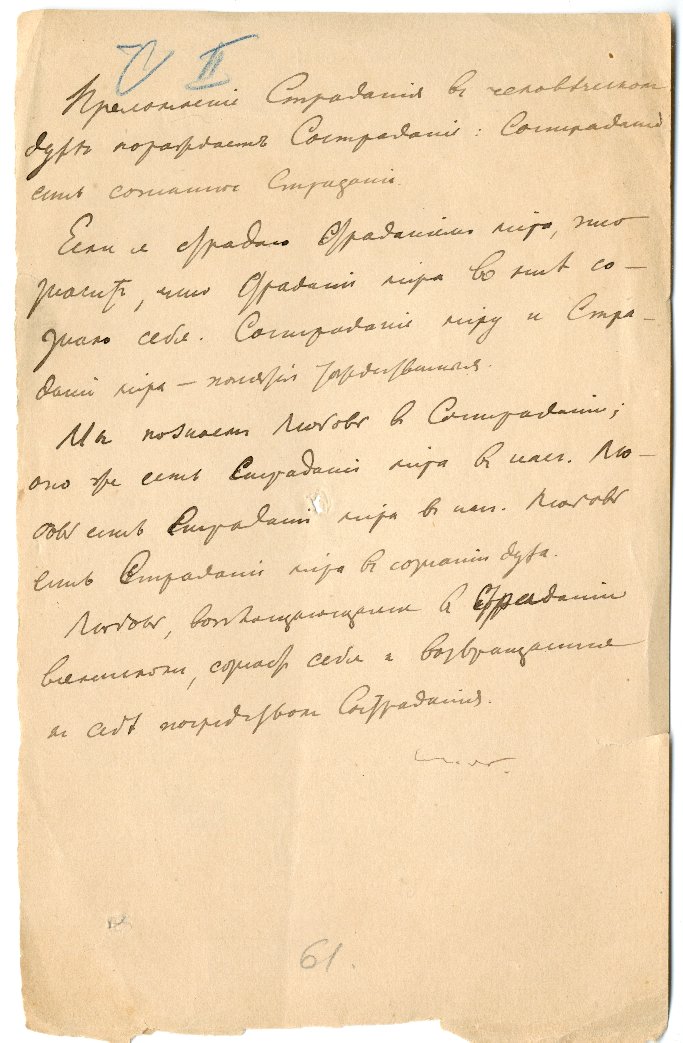 II
Преломленіе Страданія въ человѣческомъ
духѣ порождаетъ Состраданіе: Состраданіе
есть сознанное Страданіе.
Если я страдаю Страданіемъ міра, это
значитъ, что Страданіе міра во мнѣ со-
знало себя. Состраданіе міру и Стра-
даніе міра — понятія тождественныя.
Мы познаемъ Любовь въ Состраданіи;
оно же есть Страданіе міра въ насъ. Лю-
бовь есть Страданіе міра въ насъ. Любовь
есть Страданіе міра въ сознаніи духа.
Любовь, воплощающаяся въ Страданіи
вселенскомъ, сознаетъ себя и возвращается
къ себѣ посредствомъ Состраданія.
61.